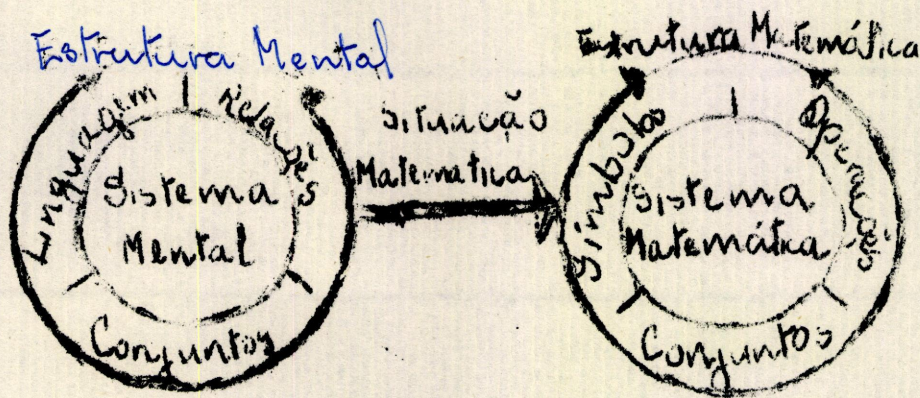 Estrutura Mental
Linguagem
Relações
Sistema
Mental
Conjuntos
Situação
Matematica
Estrutura Matemática
Símbolos
Operações
Sistema
Matemática
Conjuntos